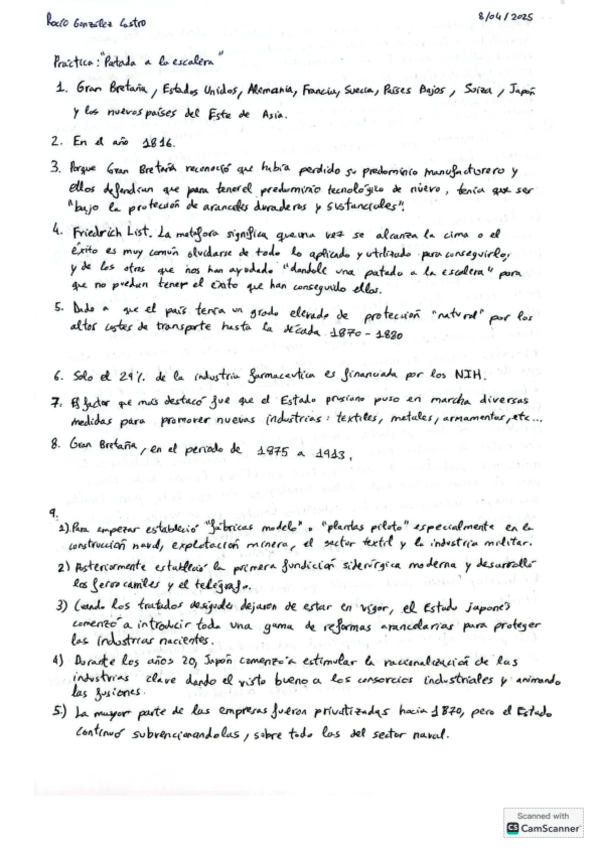 Rocío González Castro
8/04/2025
Práctica: "Patada a la escalera"
1. Gran Bretaña, Estados Unidos, Alemania, Francia, Suecia, Países Bajos, Suiza, Japón
y los nuevos países del Este de Asia.
2. En el año 1816.
3. Porque Gran Bretaña reconoció que había perdido su predominio manufacturero y
ellos defendían que para tener el predominio tecnológico de nuevo, tenía que ser
"bajo la protección de aranceles duraderos y sustanciales".
4. Friedrich List. La metáfora significa que una vez se alcanza la cima o el
éxito es muy común olvidarse de todo lo aplicado y utilizado para conseguirlo,
y de los otros que nos han ayudado "dandole una patada a la escalera" para
que no puedan tener el éxito que han conseguido ellos.
5. Dado a que el país tenía un grado elevado de protección "natural" por los
altos costes de transporte hasta la década 1870-1880
6. Solo el 29% de la industria farmaceutica es financiada por los NIH.
7. El factor que más destacó fue que el Estado prusiano puso en marcha diversas
medidas para promover nuevas industrias: textiles, metales, armamentos, etc...
8. Gran Bretaña, en el periodo de 1875 a 1913.
9.
1) Para empezar estableció "fábricas modelo" o "plantas piloto" especialmente en la
construcción naval, explotación minera, el sector textil y la industria militar.
2) Posteriormente estableció la primera fundición siderúrgica moderna y desarrolló
los ferrocarriles y el telégrafo.
3) Cuando los tratados desiguales dejaron de estar en vigor, el Estado japonés
comenzó a introducir toda una gama de reformas arancelarias para proteger
las industrias nacientes.
4) Durante los años 20, Japón comenzó a estimular la racionalización de las
industrias clave dando el visto bueno a los consorcios industriales y animando
las fusiones.
5) La mayor parte de las empresas fueron privatizadas hacia 1870, pero el Estado
continuó subvencionandolas, sobre todo las del sector naval.
Scanned with
CS CamScanner